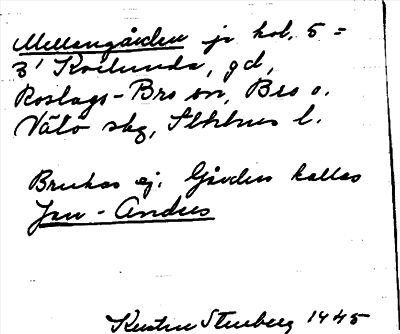 Mellangården jr kol. 5 =
3' Kvilunda, gd,
Roslags-Bro sn, Bro o.
Väto skg, Sthlms l.
Brukas ej. Gården kallas
Jan-Anders
Kerstin Stenberg 1945